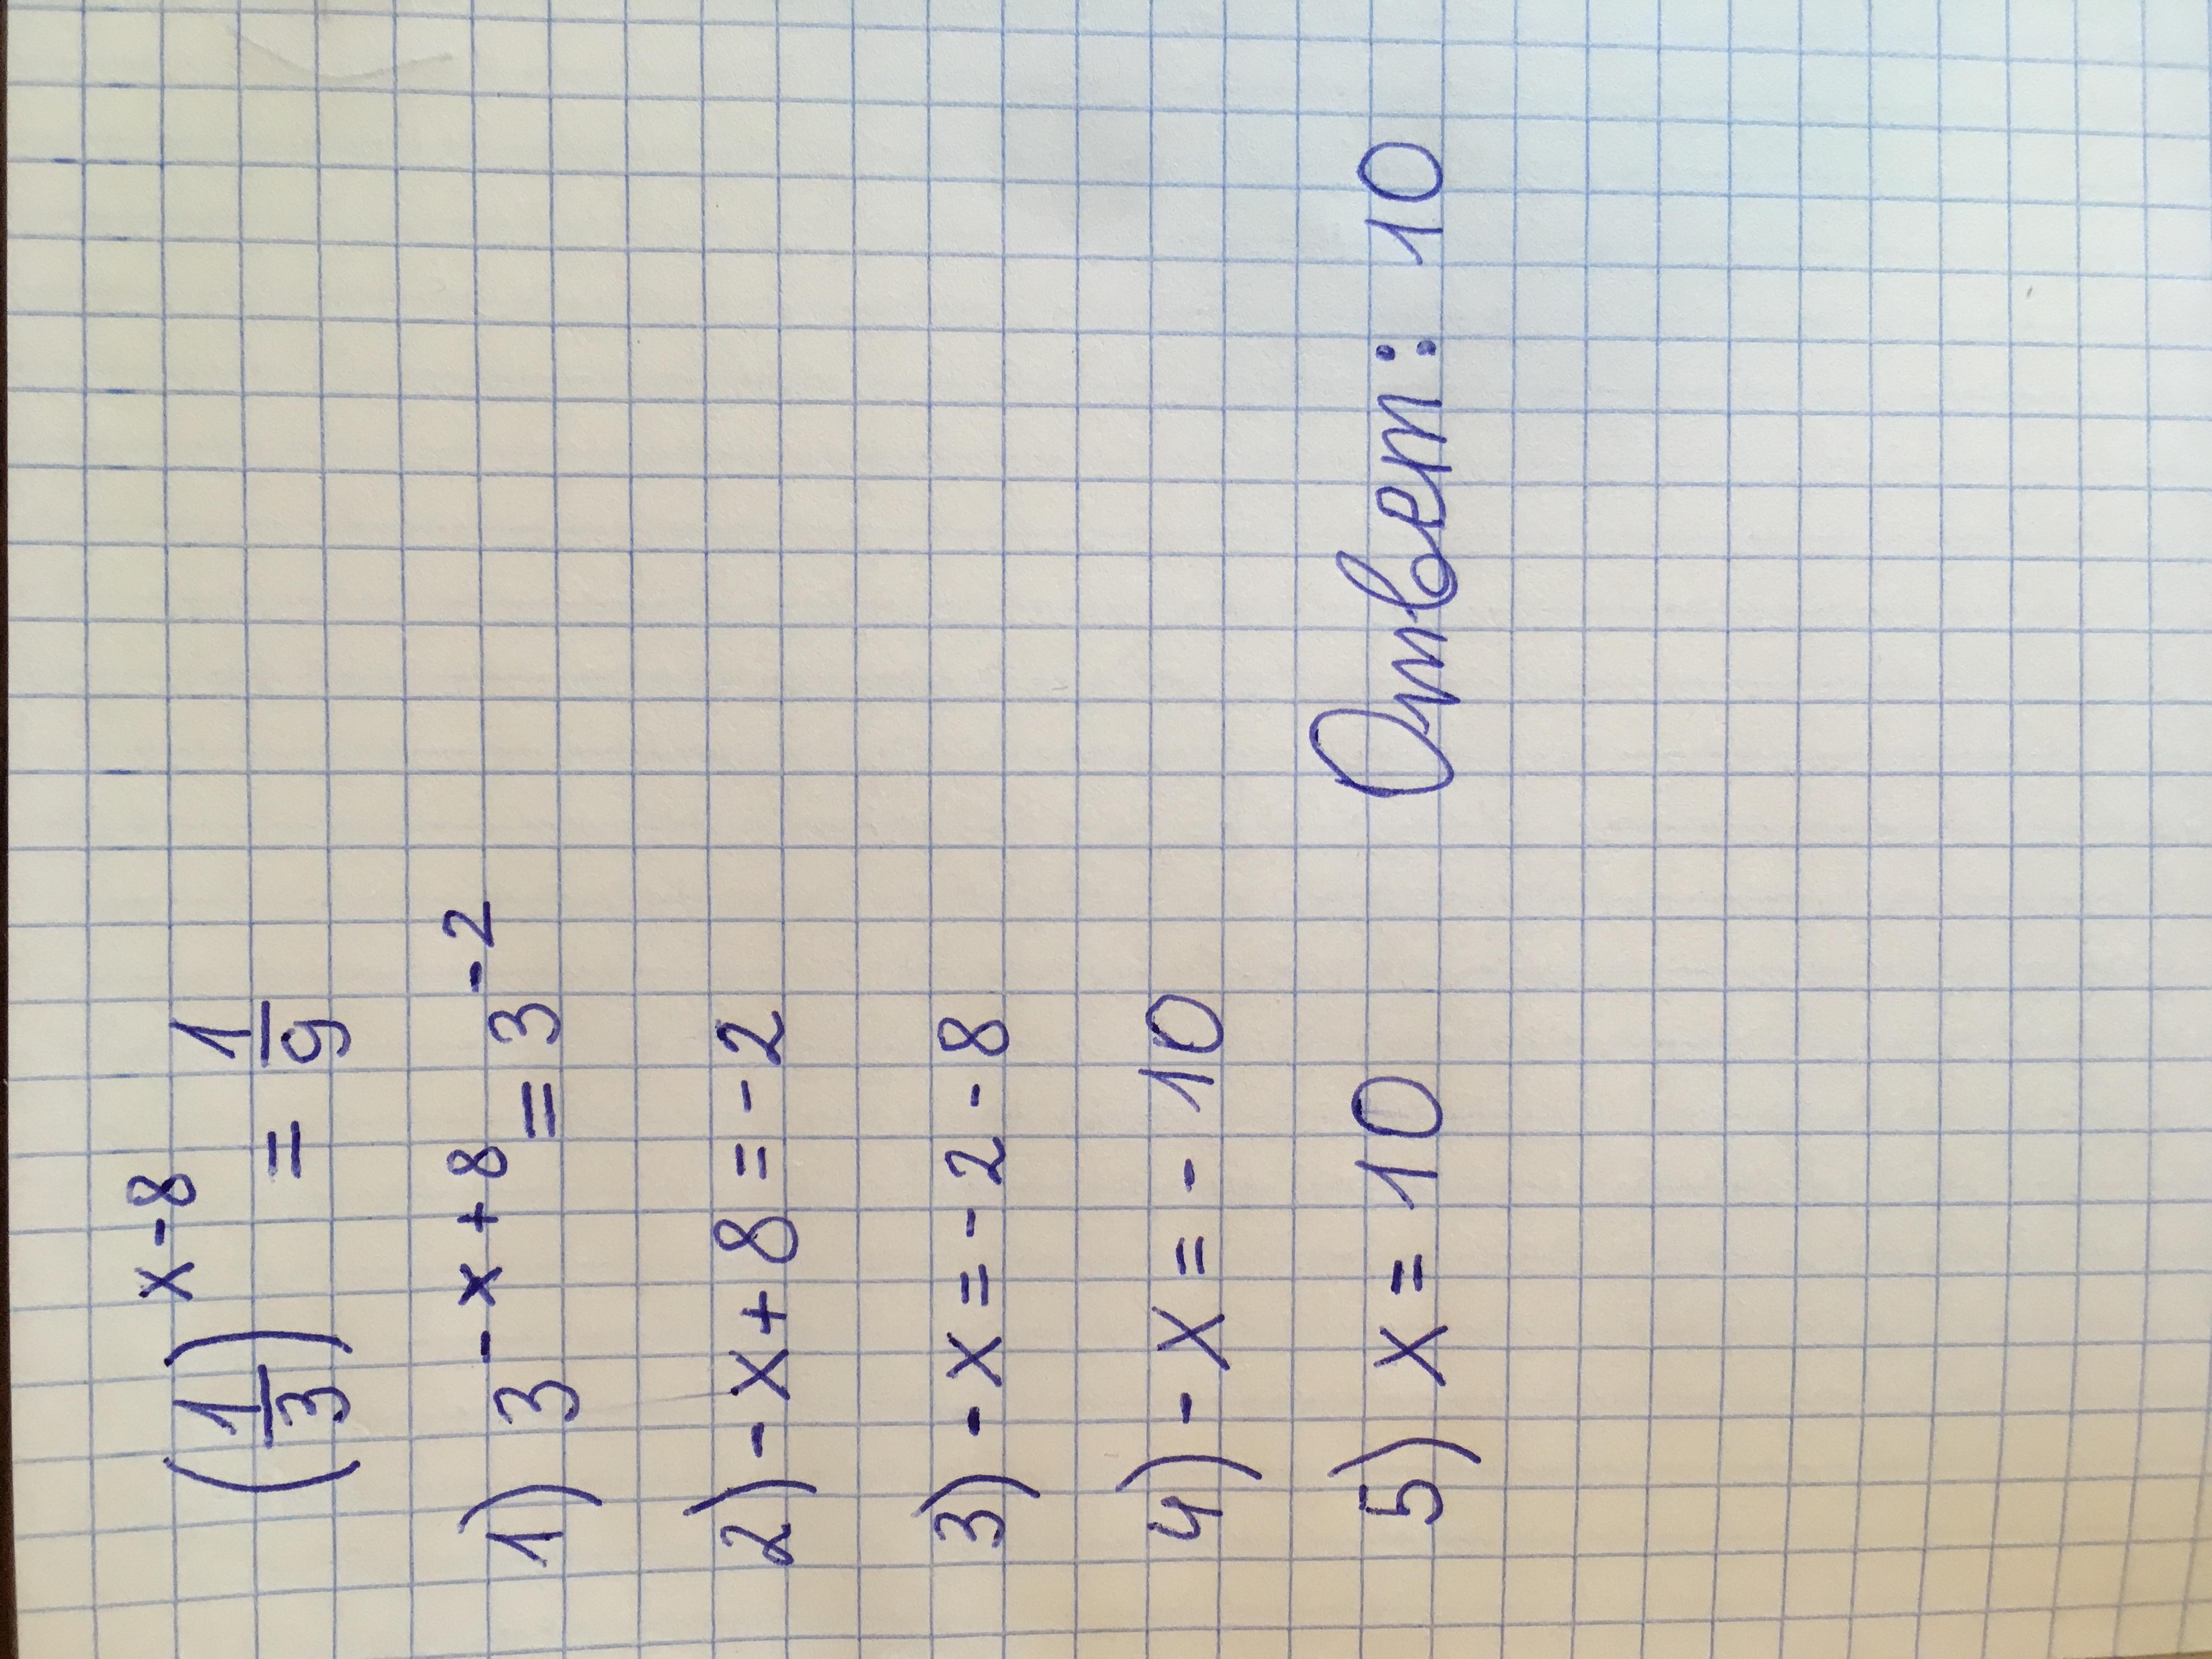 (1/3)^(x-8) = 1/9
1) 3^(-x+8) = 3^(-2)
2) -x+8=-2
3) -x=-2-8
4) -x=-10
5) x=10 Ответ: 10